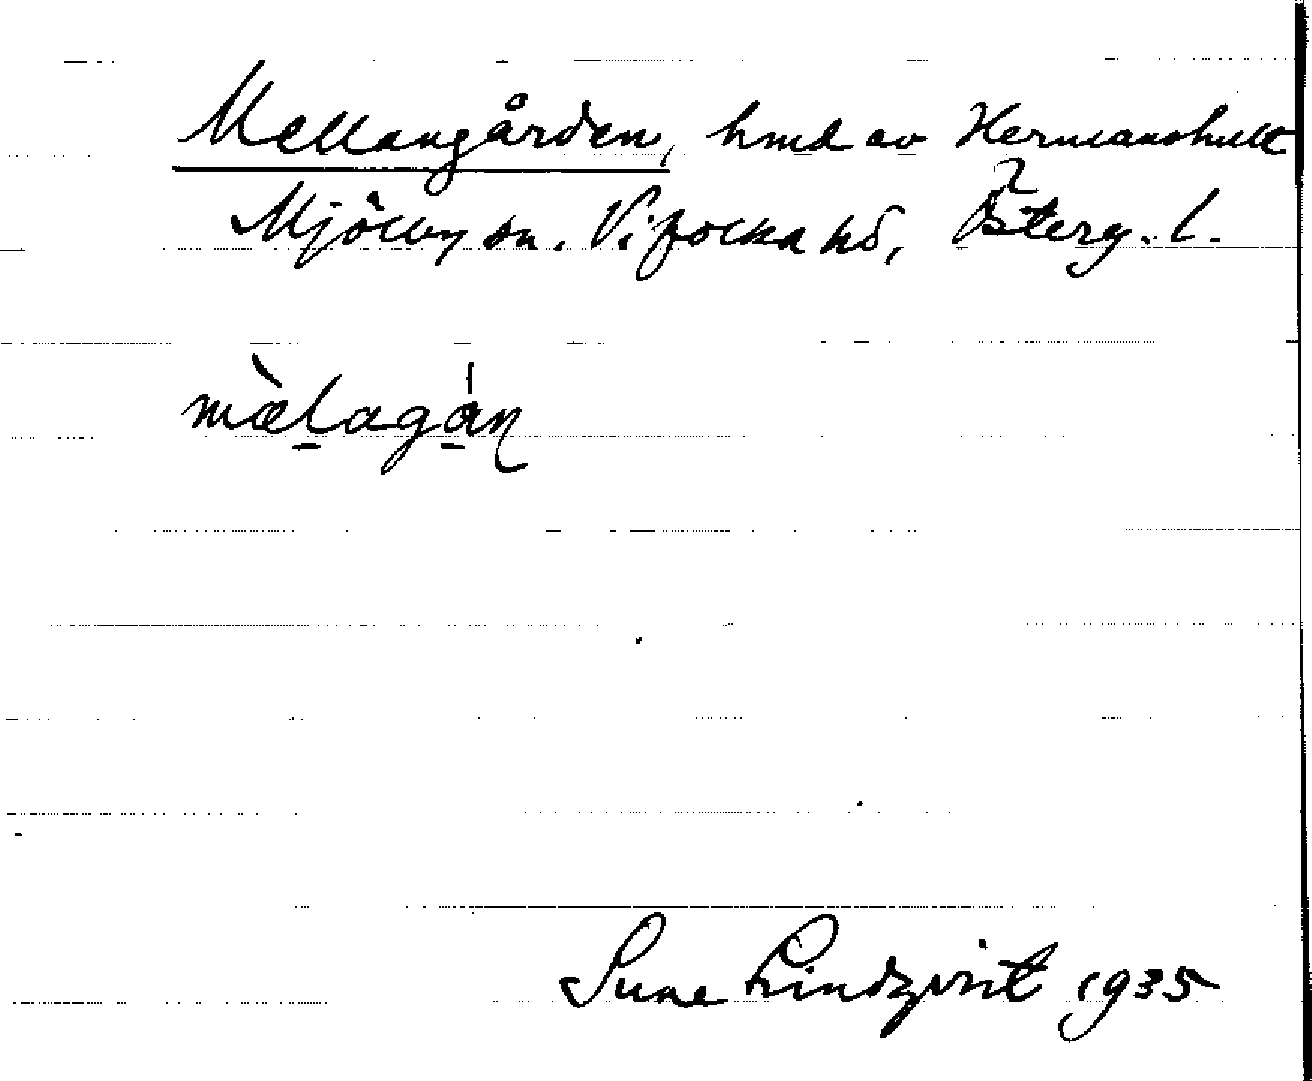 Mellangården, hmd av Hermanshult
Mjölby sn. Vifolka hd, Österg. l.
mæ̀l̠agá̠ɳ
Sune Lindqvist 1935